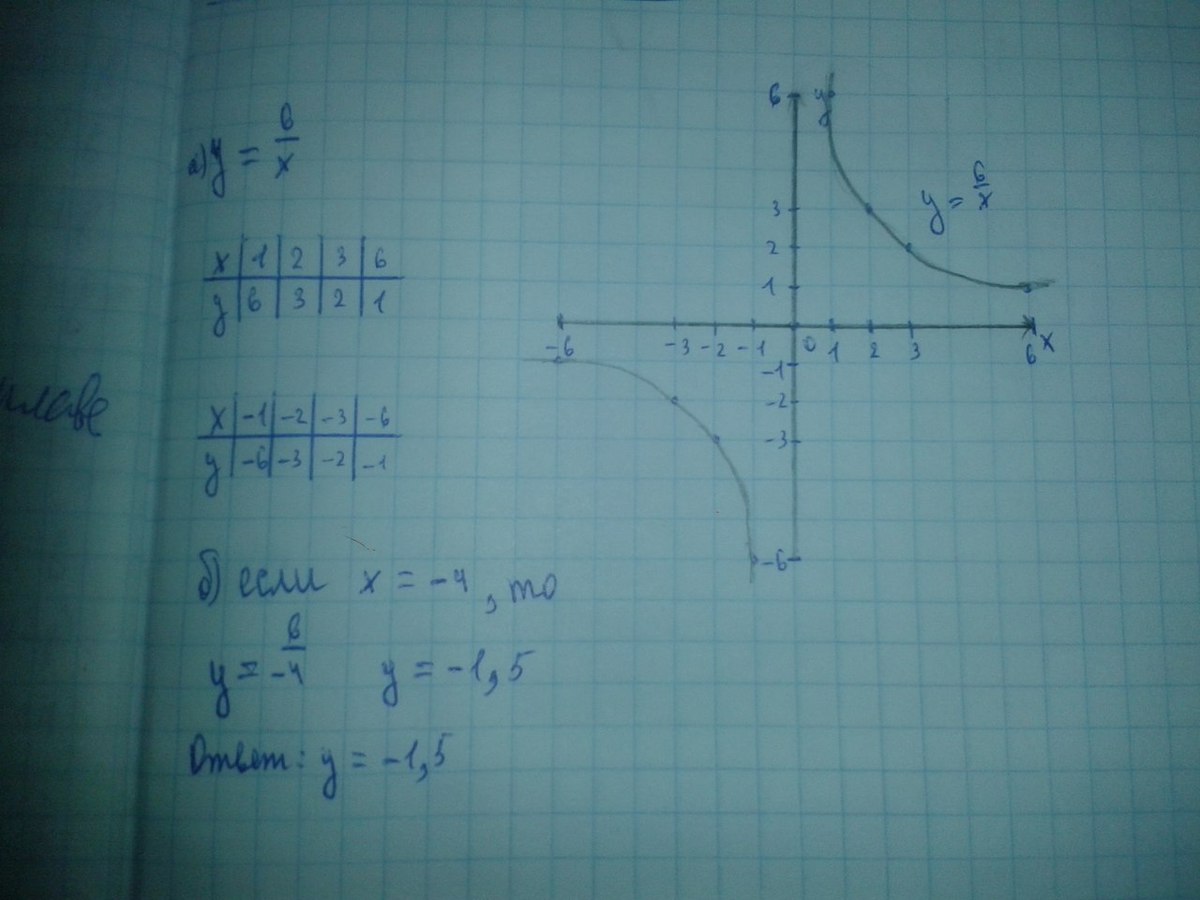 а) y = 6/x
x | 1 | 2 | 3 | 6
y | 6 | 3 | 2 | 1
x | -1 | -2 | -3 | -6
y | -6 | -3 | -2 | -1
б) если x = -4, то
y = 6/-4 y = -1,5
Ответ: y = -1,5
6 y
y = 6/x
3
2
1
-6 -3 -2 -1 0 1 2 3 6 x
-1
-2
-3
-6